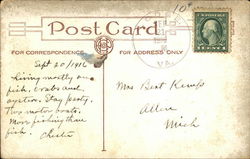 10¢
Post Card
FOR CORRESPONDENCE
FOR ADDRESS ONLY
VA.
Sept 20/1916
Living mostly on
fish, crabs and
oysters. Stay
Two motor boats.
More fishing than
fish. Chester
Mrs Bert Kemps
Allen
Mich